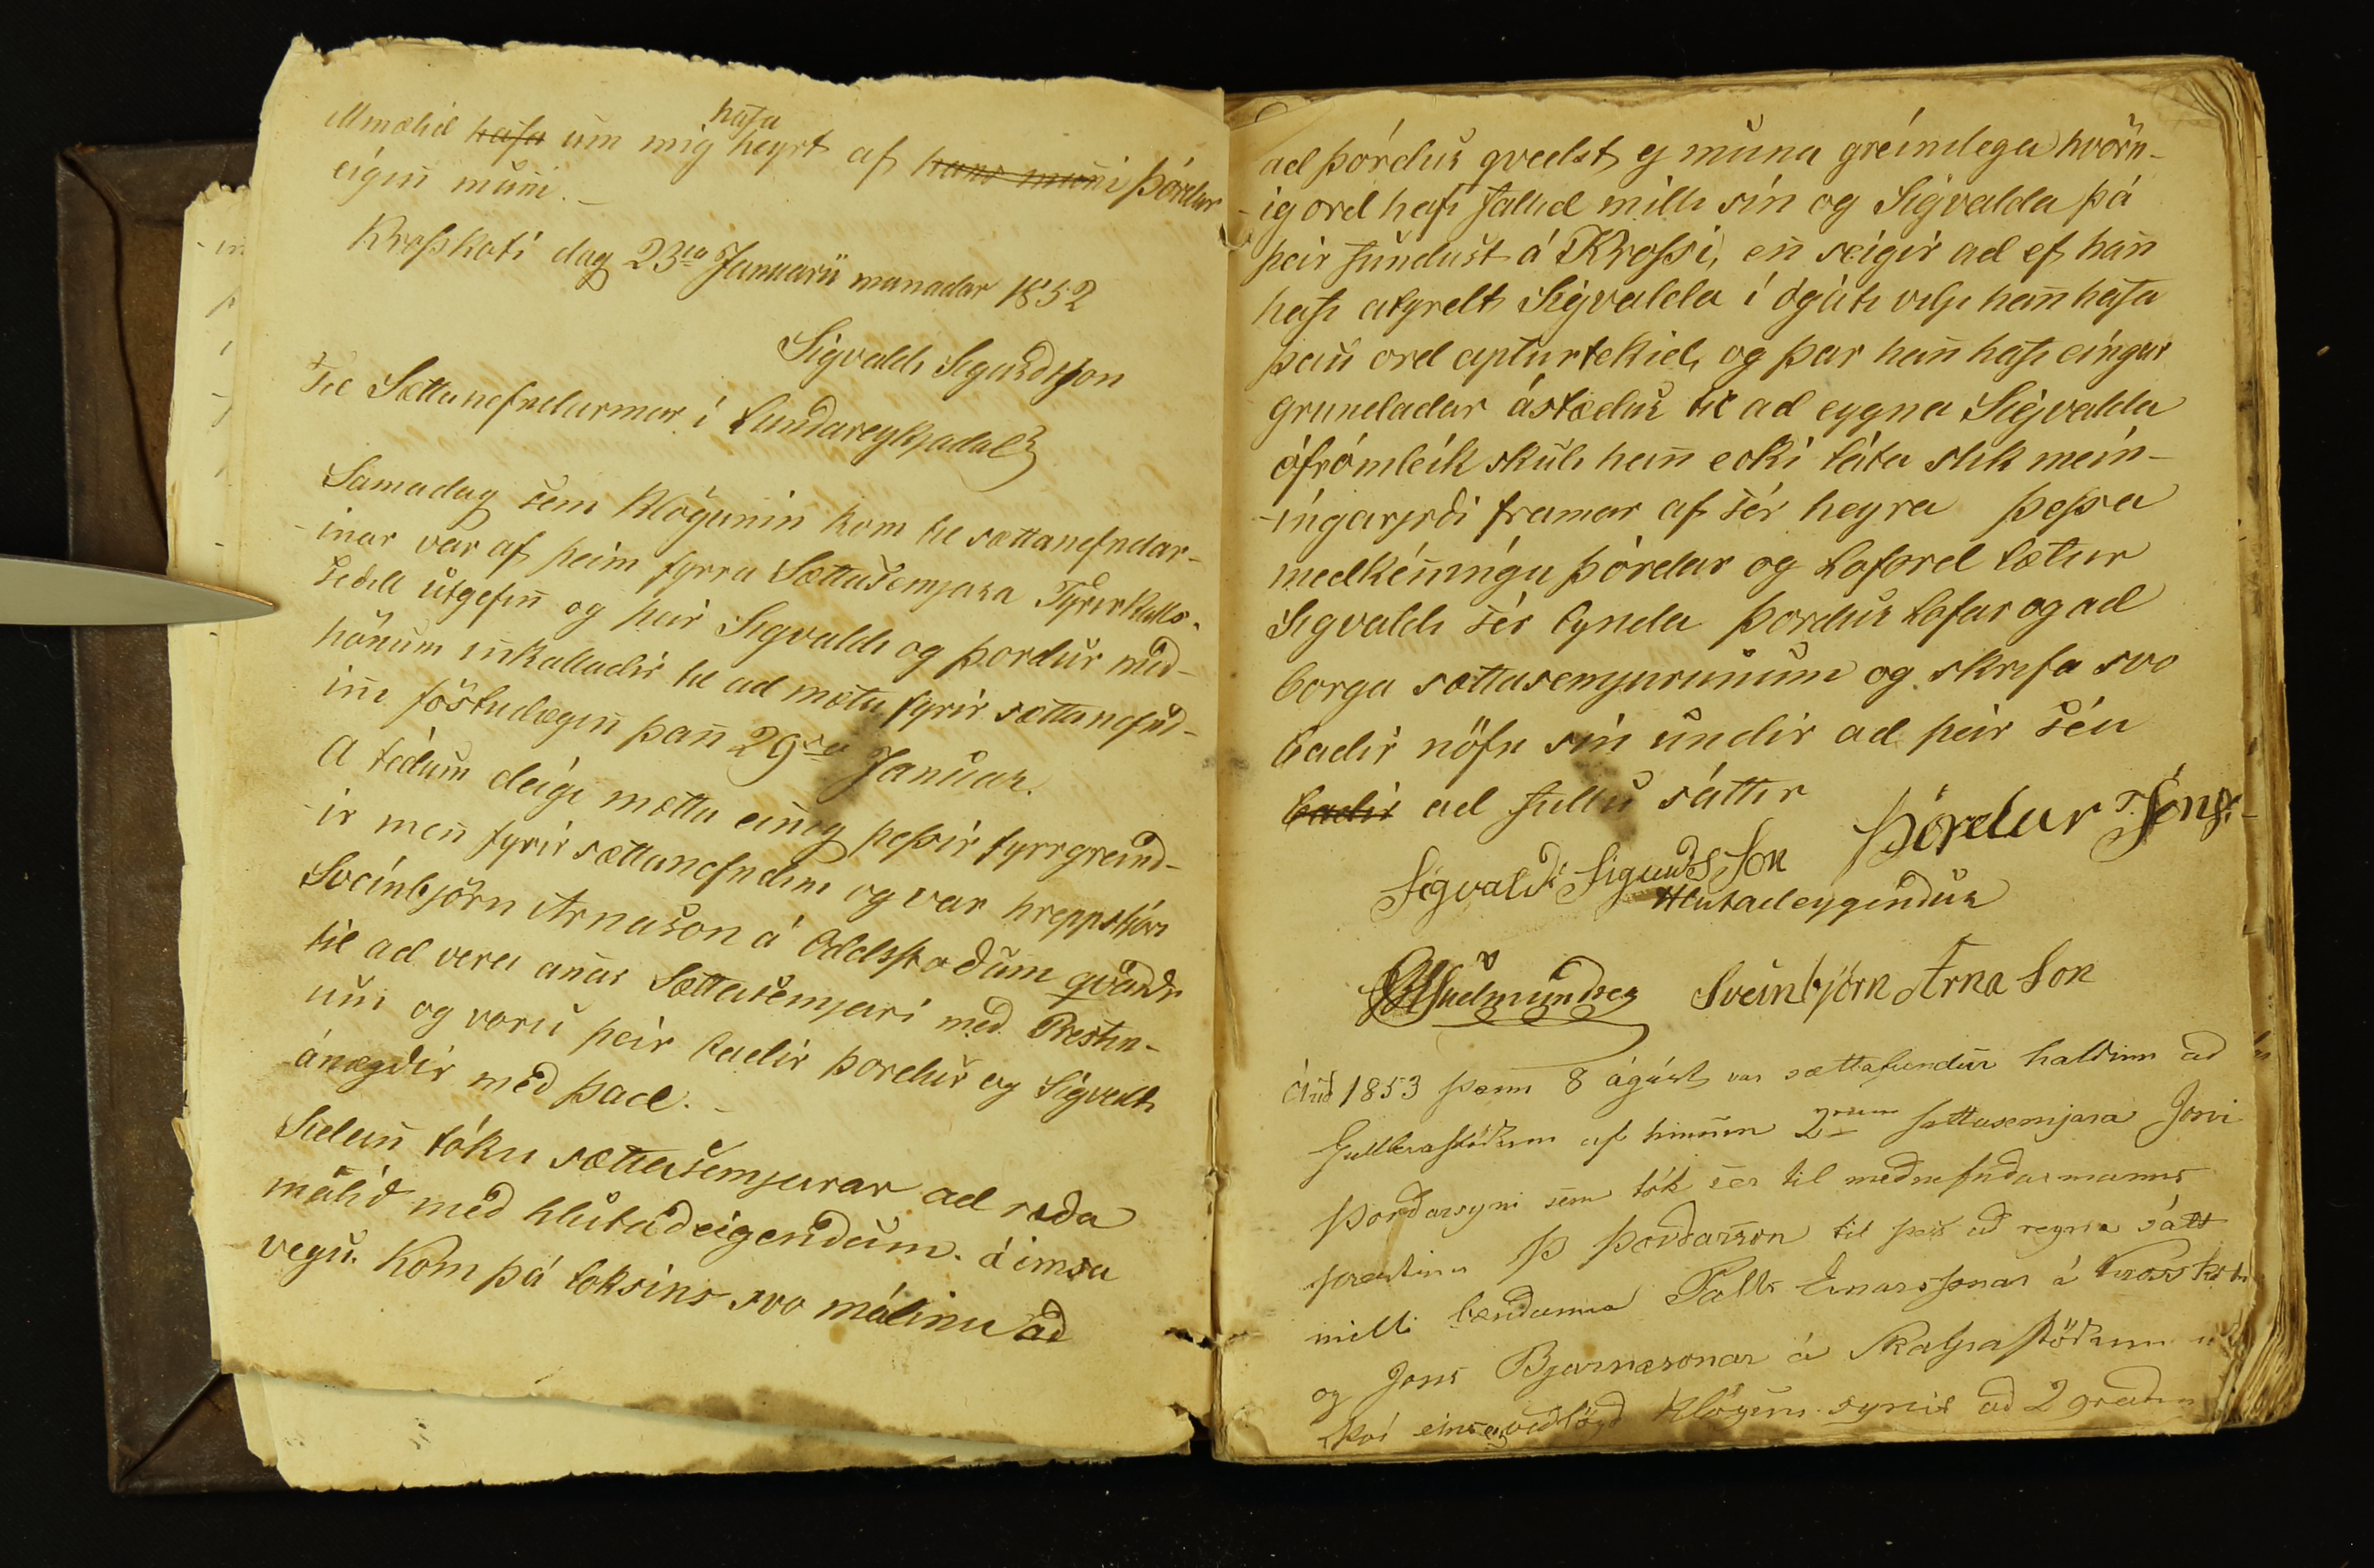 hafa
ummælid hafa um mig heyrt af hans muni Þórdar
eigin muni. –
Krosskoti dag 23ia Januarii manadar 1852
Sigvaldi Sigurdsson
Til Sættanefndarinnar í Lundareykjadal
Samadag sem Klögunin kom til sættanefndar-
-innar var af þeim fyrra Sættasemjara Fyrirkalls-
sedill útgefinn og þeir Sigvaldi og Þordur med
hönum innkalladir til ad mæta fyrir sættanefnd-
inni föstudæginn þann 29da Januar.
A tédum deigi mættu einnig þessir fyrrgreind-
-ir menn fyrir sættanefndinni og var hreppstjóri
Sveinbjörn Arnason á Oddsstodum qvaddr
til ad vera annar Sættasemjari med Prestin-
um og voru þeir badir Þordur og Sigvaldi
ánægdir med þad. –
Sidann tóku sættasemjarar ad ræda
málid med hlutadeigendum. á imsa
vegu. Kom þá loksins svo málinu ad
ad Þórdur qvedst ej muna greinilega hvörn-
-ig ord hafi fallid milli sín og Sigvalda þá
þeir fundust á Krossi, en seigir ad ef hann
hafi atyrdt Sigvalda í ógáti vilji hann hafa
þau ord apturtekid, og þar hann hafi eingar
grundadar ástædur til ad eygna Sigvalda
ófrómleik skuli hann ecki láta slik mein-
-ingaryrdi framar af sér heyra Þessa
medkénningu Þórdar og loford lætur
Sigvaldi sér lynda Þordur lofar og ad
borga sættasemjurunum og skrifa svo
badir nöfn sín undir ad þeir séu
badir ad fullu sáttir
Þórdur Jónss.
Sigvaldi Sigurdsson
Hlutadeygendur
Gudmundsen Sveinbjörn Arnason
Árid 1853 þann 8 ágúst var sættafundur haldinn ad
Gullberastödum af hinum 2rum sattasemjara Joni
Þordarsyni sem tók sér til mednefndarmanns
prestinn Þ Þordarson til þess ad reyna sátt
milli bændanna Páls Einarssonar á Krosskoti
og Jons Bjarnasonar á Skalpastödum
því eins og vidlögd Klögun synir ad 2